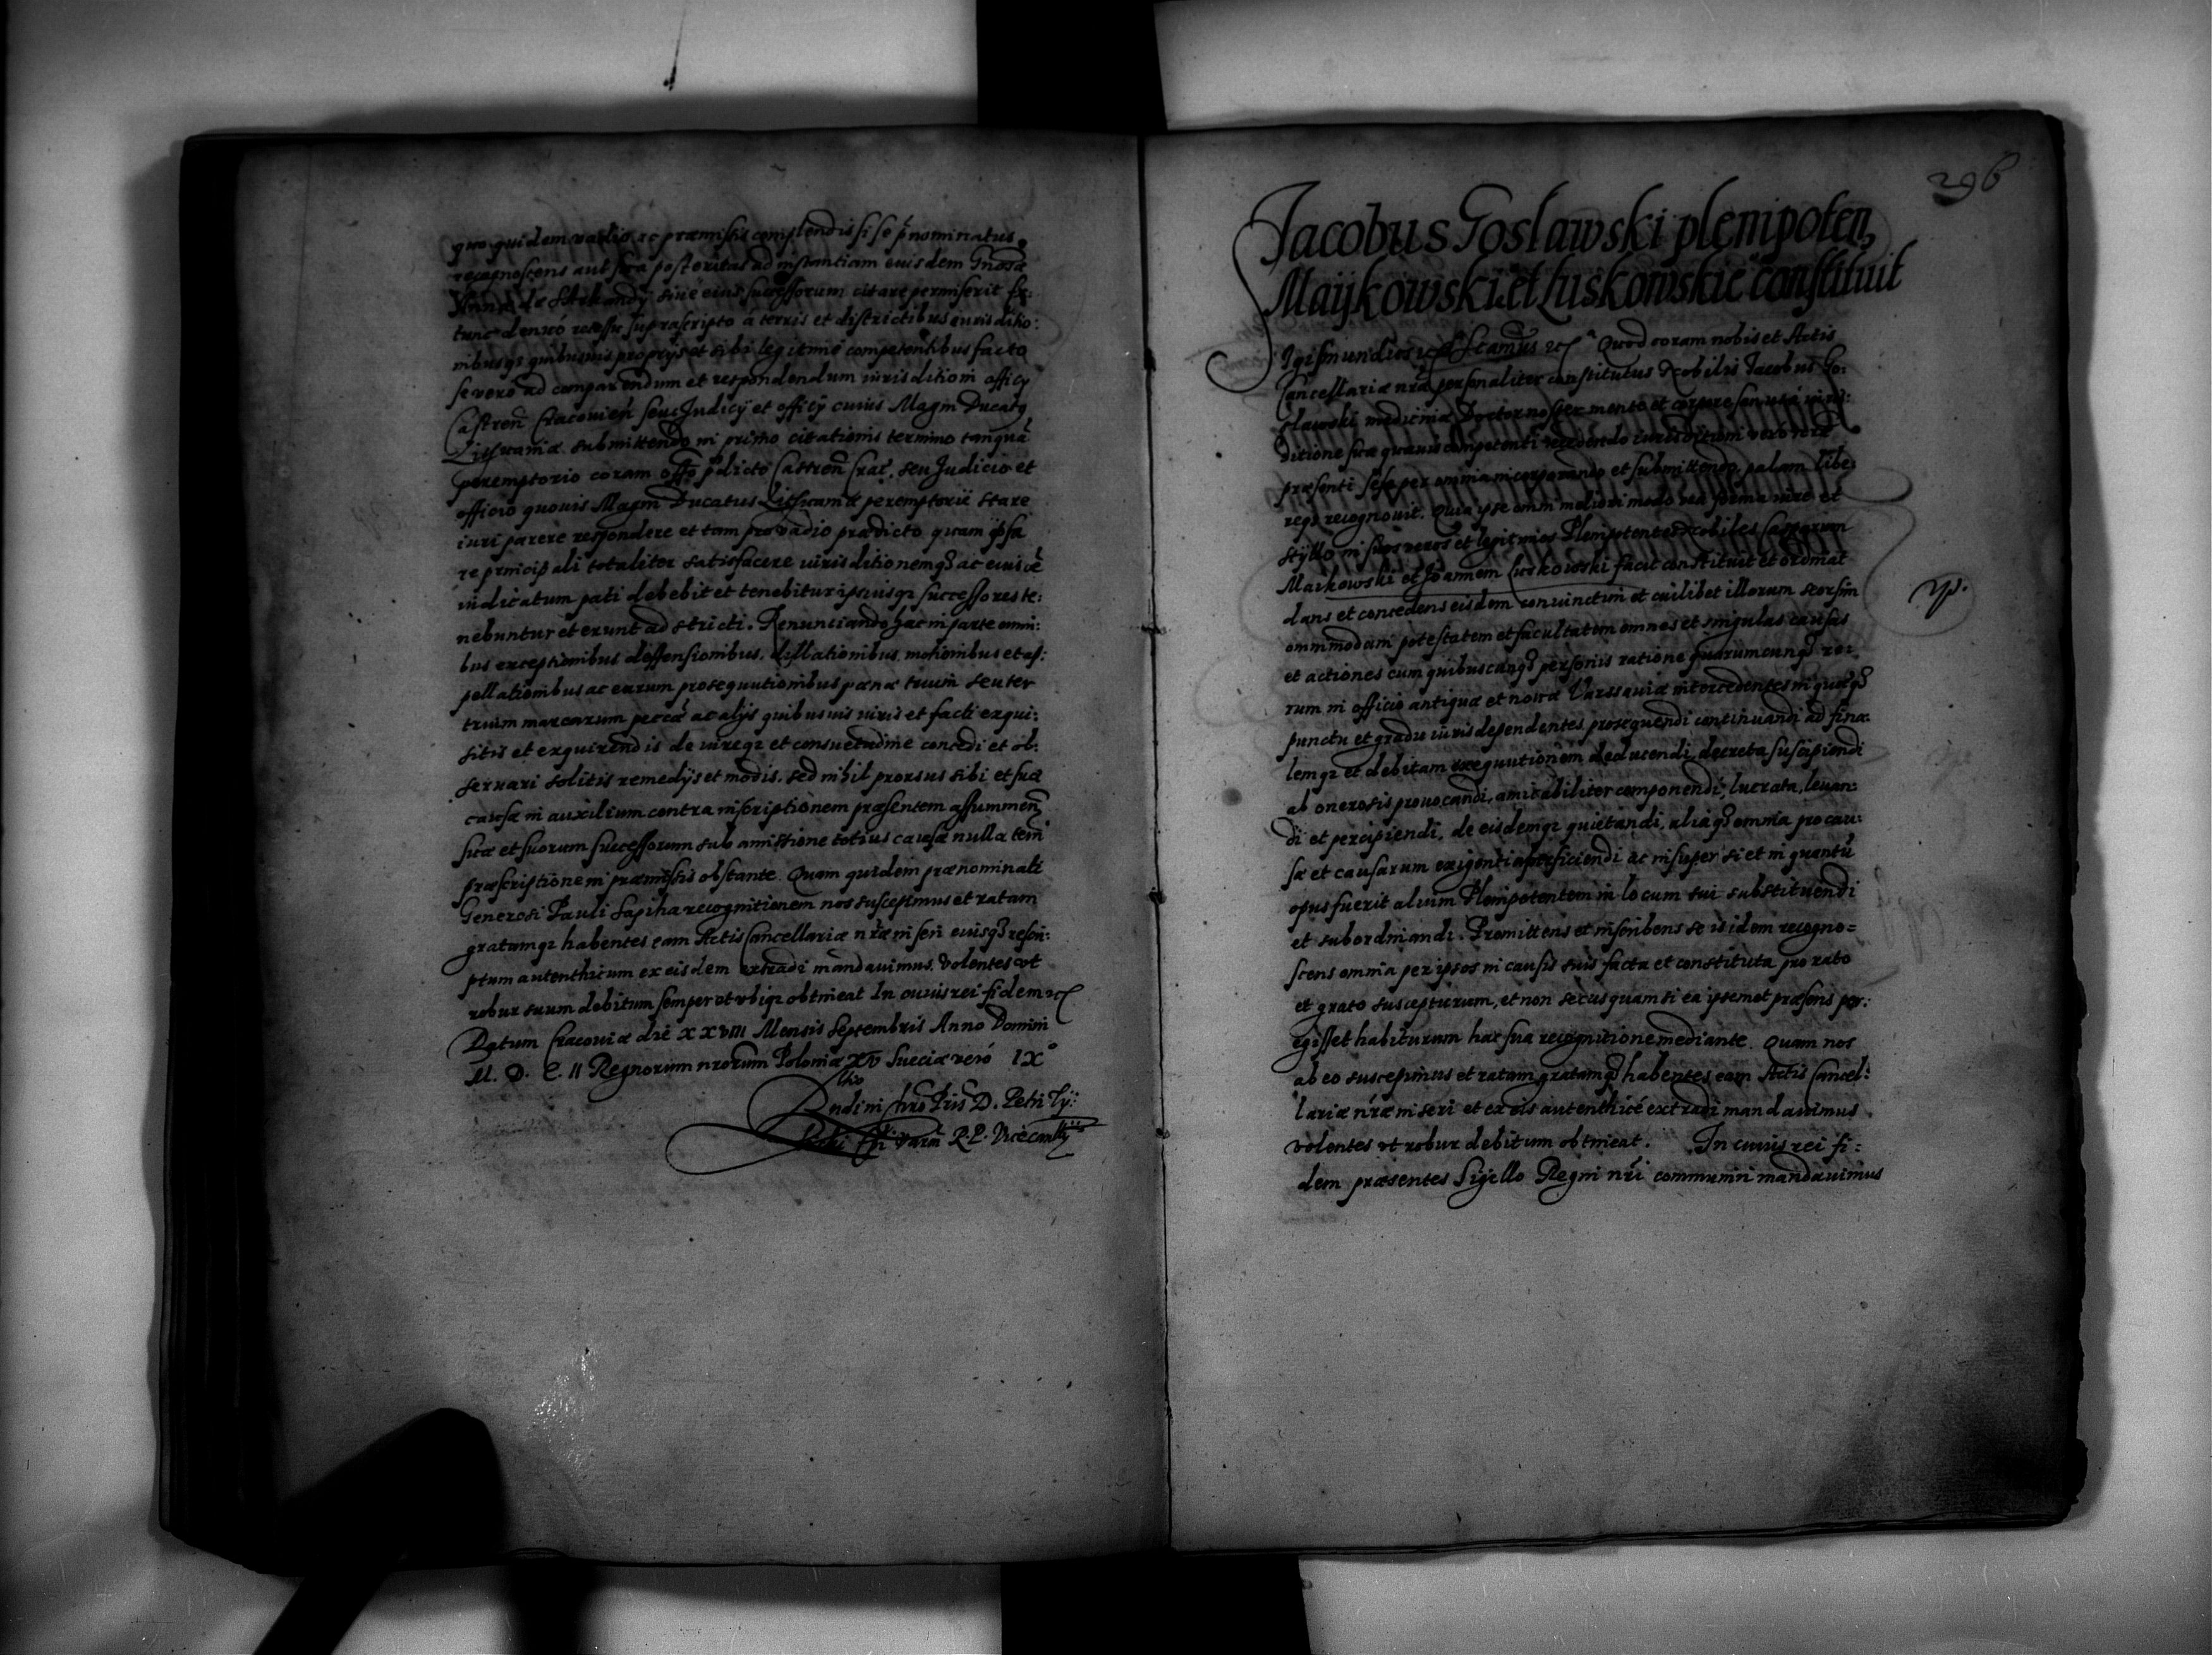 quo quidem vadio, ac præmissis complendis si se p̃nominatus
recognoscens aut sua posteritas ad instantiam eiusdem Gnosæ
Annæ de sive eius successorum citare permiserit Ex:
tunc denuó recessu suprascripto á terris et districtibus iurisditio:
nibusqȝ quibusuis proprys et sibi legitime competentibus facto
se vero ad comparendum et respondendum iurisdition officy
Castren̄ Cracovien̄ seu Judicÿ et officÿ cuius Magni Ducatꝰ
Lithuaniæ submittendo in primo citationis termino tanquā
peremptorio coram offo p̃dicto Castren̄ Crac̄. seu Judicio et
officio quouis Magni Ducatus Lithuaniæ peremptorie stare
iuri parere respondere et tam pro vadio prædicto quam ipsa
re principali totaliter satisfacere iurisditionemqȝ ac eiusdē
iudicatum pati debebit et tenebitur ipsiusqȝ successores te:
nebuntur et erunt adstricti. Renunciando hac in parte omni:
bus exceptionibus deffensionibus, dillationibus, motionibus et ap:
pellationibus ac earum prosequutionibus pœnæ trium seu ter
trium marcarum peccā ac alÿs quibusuis iuris et facti exqui:
sitis et exquirendis de iureqȝ et consuetudine concedi et ob:
seruari solitis remedÿs et modis, sed nihil prorsus sibi et suæ
causæ in auxilium contra inscriptionem præsentem assummen̄
suæ et suorum successorum sub amissione totius causæ nulla tem̄
præscriptione in præmissis obstante. Quam quidem prænominati
Generosi Pauli Sapiha recognitionem nos suscepimus et ratam
gratamqȝ habentes eam Actis Cancellariæ nr̄æ inseri eiusqȝ rescri:
ptum autenthicum ex eisdem extradi mandauimus. Volentes vt
robur suum debitum semper et vbiqȝ obtineat In cuius rei fidem etc
Datum Cracouiæ die XXVIII Mensis Septembris Anno Domini
M. D. C. II Regnorum nrorum Poloniæ XV Sueciæ veró IXº
D. Petri Ty:
R. P. Vicecanlly
296
Jacobus Goslawski plenipoten,
Maijkowski et Luskowskie constituit
Igismundus etc Significamus etc Quod coram nobis et Actis
Cancellariæ nræ personaliter constitutus Nobilis Jacobus Go:
slawski medicinæ Doctor noster mente et corpore sanus á iuris:
ditione sua quauis competenti recedendo iurisditioni veró
præsenti sese per omnia incorporando et submittendo, palam libe:
reqȝ recognouit. Quia ipse omni meliori modo via forma iure et
styllo in suos veros et legitimos Plenipotentes Nobiles
Maikowski et Joannem Luskowski facit constituit et ordinat
dans et concedens eisdem coniunctim et cuilibet illorum seorsim
ommimodam potestatem et facultatem omnes et singulas causas
et actiones cum quibuscunqȝ personis ratione quarumcunqȝ re:
rum in officio antiquæ et nouæ Varssauiæ intercedentes in quoqȝ
punctu et gradu iuris dependentes prosequendi continuandi ad fina:
lemqȝ et debitam exequutionem deducendi, decreta suscipiendi
ab onerosis prouocandi, amicabiliter componendi, lucrata, leuan:
di et percipiendi, de eisdemqȝ quietandi, aliaqȝ omnia pro cau:
sæ et causarum exigentia perficiendi ac insuper si et in quantū
opus fuerit alium Plenipotentem in locum sui substituendi
et subordinandi. Promittens et inscribens se is idem recogno=
scens omnia per ipsos in causis suis facta et constituta pro rato
et grato suscepturum, et non secus quam si ea ipsemet præsens per:
egisset habiturum hac sua recognitione mediante. Quam nos
ab eo suscepimus et ratam gratamqȝ habentes eam Actis Cancel:
lariæ nr̄æ inseri et ex eis autenthicé extradi mandauimus.
volentes vt robur debitum obtineat. In cuius rei fi:
dem præsentes Sigello Regni nr̄i communiri mandauimus